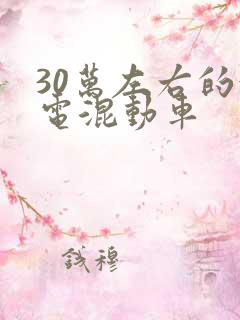 30萬左右的
電混動車
錢穆